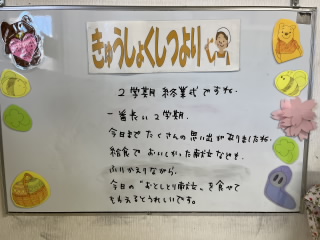 きゅうしょくしつより
2学期 終業式ですね。
一番長い2学期。
今日までたくさんの思い出がありましたね。
給食でおいしかった献立なども、
ふりかえりながら、
今日の"おとしとり献立"を食べて
もらえるとうれしいです。